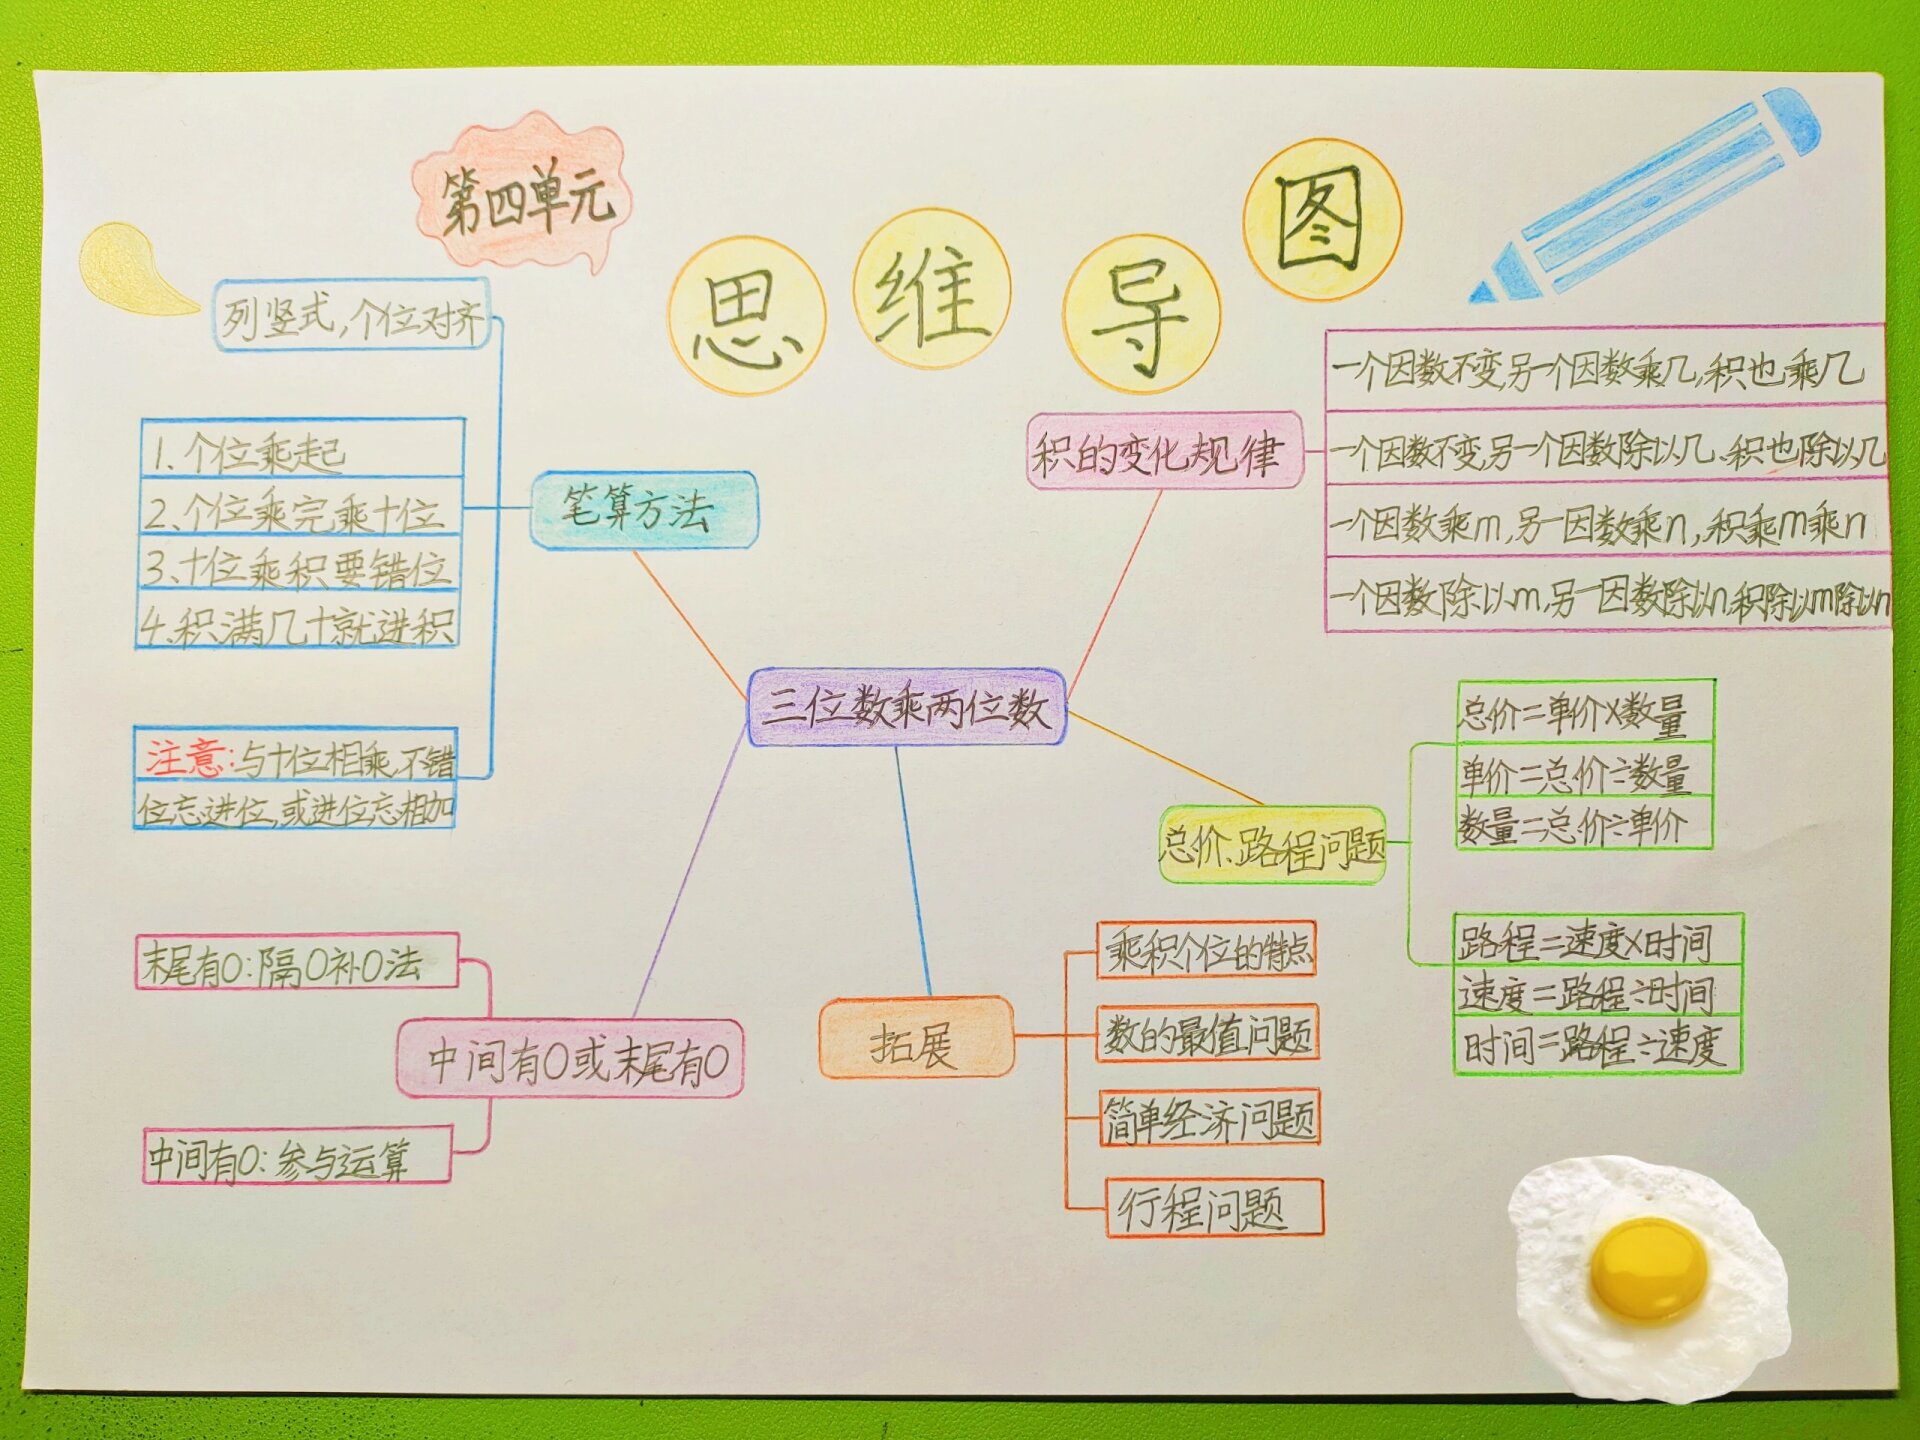 第四单元
思维导图
列竖式,个位对齐
1、个位乘起
2、个位乘完乘十位
3、十位乘积要错位
4、积满几十就进积
注意:与十位相乘,不错
位忘进位,或进位忘相加
笔算方法
积的变化规律
一个因数不变,另一个因数乘几,积也乘几
一个因数不变,另一个因数除以几、积也除以几
一个因数乘m,另一因数乘n,积乘m乘n
一个因数除以m,另一因数除以n,积除以m除以n
三位数乘两位数
总价、路程问题
总价=单价×数量
单价=总价÷数量
数量=总价÷单价
路程=速度×时间
速度=路程÷时间
时间=路程÷速度
末尾有0:隔0补0法
中间有0或末尾有0
中间有0:参与运算
拓展
乘积个位的特点
数的最值问题
简单经济问题
行程问题